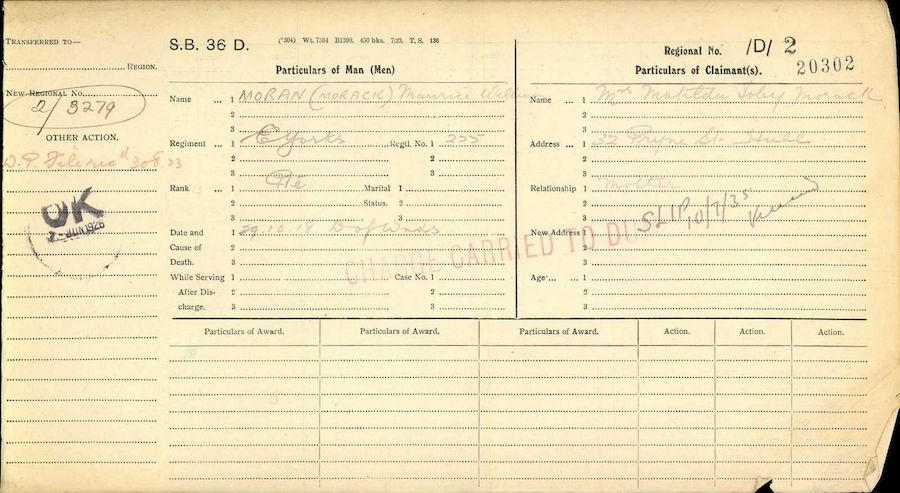 TRANSFERRED TO—
REGION.
NEW REGIONAL No.
2/3279
OTHER ACTION.
D.P. File rec d 30 8 23
OK
JUN 1926
S.B. 36 D.
(*304) Wt. 7384 B1398. 450 bks. 7/23. T.S. 136
Particulars of Man (Men)
Name ... 1 MORAN (MORACK) Maurice
2
3
Regiment ... 1 E Yorks Regtl. No. 1 225
2 2
3 3
Rank ... 1 Pte Marital 1
2 Status. 2
3 3
Date and 1 29.10.18 D of Wnds
Cause of 2
Death. 3
While Serving 1 Case No. 1
After Dis- 2 2
charge. 3 3
CHARGE CARRIED TO
Regional No. /D/ 2
20302
Particulars of Claimant(s).
Name ... 1 Mrs Matilda Toby Morack
2
3
Address ... 1 32 Pryme St. Hull
2
3
Relationship 1 Mother
2
3
SLIP 10/7/35
New Address 1
2
3
Age ... 1
2
3
Particulars of Award. Particulars of Award. Particulars of Award. Action. Action. Action.